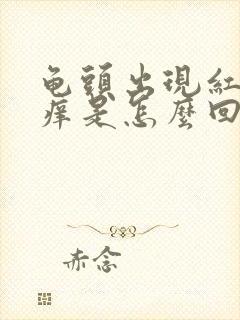 龟頭出現紅
痒是怎麼回
赤念